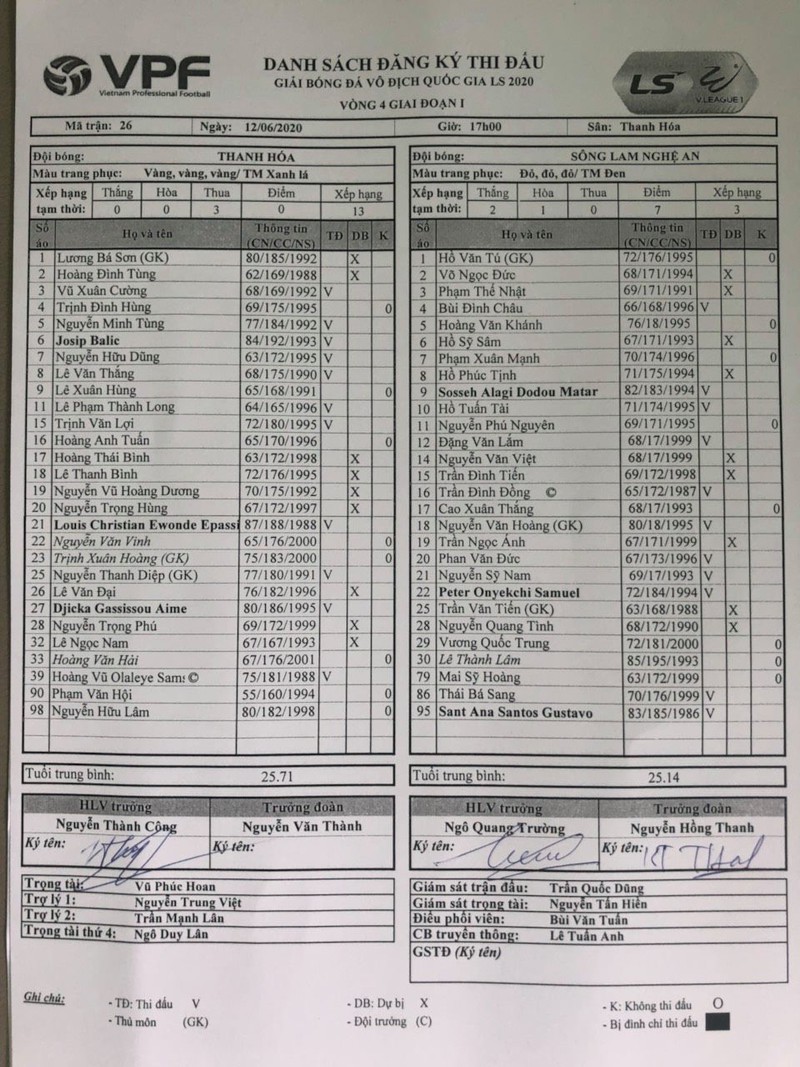 VPF
Vietnam Professional Football
DANH SÁCH ĐĂNG KÝ THI ĐẤU
GIẢI BÓNG ĐÁ VÔ ĐỊCH QUỐC GIA LS 2020
VÒNG 4 GIAI ĐOẠN I
LS
V.LEAGUE 1
Mã trận: 26 Ngày: 12/06/2020 Giờ: 17h00 Sân: Thanh Hóa
Đội bóng: THANH HÓA
Màu trang phục: Vàng, vàng, vàng/ TM Xanh lá
Xếp hạng tạm thời: Thắng Hòa Thua Điểm Xếp hạng
0 0 3 0 13
Số áo Họ và tên Thông tin (CN/CC/NS) TĐ DB K
1 Lương Bá Sơn (GK) 80/185/1992 X
2 Hoàng Đình Tùng 62/169/1988 X
3 Vũ Xuân Cường 68/169/1992 V
4 Trịnh Đình Hùng 69/175/1995 0
5 Nguyễn Minh Tùng 77/184/1992 V
6 Josip Balic 84/192/1993 V
7 Nguyễn Hữu Dũng 63/172/1995 V
8 Lê Văn Thắng 68/175/1990 V
9 Lê Xuân Hùng 65/168/1991 0
11 Lê Phạm Thành Long 64/165/1996 V
15 Trịnh Văn Lợi 72/180/1995 V
16 Hoàng Anh Tuấn 65/170/1996 0
17 Hoàng Thái Bình 63/172/1998 X
18 Lê Thanh Bình 72/176/1995 X
19 Nguyễn Vũ Hoàng Dương 70/175/1992 X
20 Nguyễn Trọng Hùng 67/172/1997 X
21 Louis Christian Ewonde Epassi 87/188/1988 V
22 Nguyễn Văn Vinh 65/176/2000 0
23 Trịnh Xuân Hoàng (GK) 75/183/2000 0
25 Nguyễn Thanh Diệp (GK) 77/180/1991 V
26 Lê Văn Đại 76/182/1996 X
27 Djicka Gassissou Aime 80/186/1995 V
28 Nguyễn Trọng Phú 69/172/1999 X
32 Lê Ngọc Nam 67/167/1993 X
33 Hoàng Văn Hải 67/176/2001 0
39 Hoàng Vũ Olaleye Sams © 75/181/1988 V
90 Phạm Văn Hội 55/160/1994 0
98 Nguyễn Hữu Lâm 80/182/1998 0
Tuổi trung bình: 25.71
HLV trưởng Trưởng đoàn
Nguyễn Thành Công Nguyễn Văn Thành
Ký tên: Ký tên:
Trọng tài: Vũ Phúc Hoan
Trợ lý 1: Nguyễn Trung Việt
Trợ lý 2: Trần Mạnh Lân
Trọng tài thứ 4: Ngô Duy Lân
Đội bóng: SÔNG LAM NGHỆ AN
Màu trang phục: Đỏ, đỏ, đỏ/ TM Đen
Xếp hạng tạm thời: Thắng Hòa Thua Điểm Xếp hạng
2 1 0 7 3
Số áo Họ và tên Thông tin (CN/CC/NS) TĐ DB K
1 Hồ Văn Tú (GK) 72/176/1995 0
2 Võ Ngọc Đức 68/171/1994 X
3 Phạm Thế Nhật 69/171/1991 X
4 Bùi Đình Châu 66/168/1996 V
5 Hoàng Văn Khánh 76/18/1995 0
6 Hồ Sỹ Sâm 67/171/1993 X
7 Phạm Xuân Mạnh 70/174/1996 0
8 Hồ Phúc Tịnh 71/175/1994 X
9 Sosseh Alagi Dodou Matar 82/183/1994 V
10 Hồ Tuấn Tài 71/174/1995 V
11 Nguyễn Phú Nguyên 69/171/1995 0
12 Đặng Văn Lắm 68/17/1999 V
14 Nguyễn Văn Việt 68/17/1999 X
15 Trần Đình Tiến 69/172/1998 X
16 Trần Đình Đồng © 65/172/1987 V
17 Cao Xuân Thắng 68/17/1993 0
18 Nguyễn Văn Hoàng (GK) 80/18/1995 V
19 Trần Ngọc Ánh 67/171/1999 X
20 Phan Văn Đức 67/173/1996 V
21 Nguyễn Sỹ Nam 69/17/1993 V
22 Peter Onyekchi Samuel 72/184/1994 V
25 Trần Văn Tiến (GK) 63/168/1988 X
28 Nguyễn Quang Tình 68/172/1990 X
29 Vương Quốc Trung 72/181/2000 0
30 Lê Thành Lâm 85/195/1993 0
79 Mai Sỹ Hoàng 63/172/1999 0
86 Thái Bá Sang 70/176/1999 V
95 Sant Ana Santos Gustavo 83/185/1986 V
Tuổi trung bình: 25.14
HLV trưởng Trưởng đoàn
Ngô Quang Trường Nguyễn Hồng Thanh
Ký tên: Ký tên:
Giám sát trận đấu: Trần Quốc Dũng
Giám sát trọng tài: Nguyễn Tấn Hiền
Điều phối viên: Bùi Văn Tuấn
CB truyền thông: Lê Tuấn Anh
GSTĐ (Ký tên)
Ghi chú: - TĐ: Thi đấu V - DB: Dự bị X - K: Không thi đấu O
- Thủ môn (GK) - Đội trưởng (C) - Bị đình chỉ thi đấu